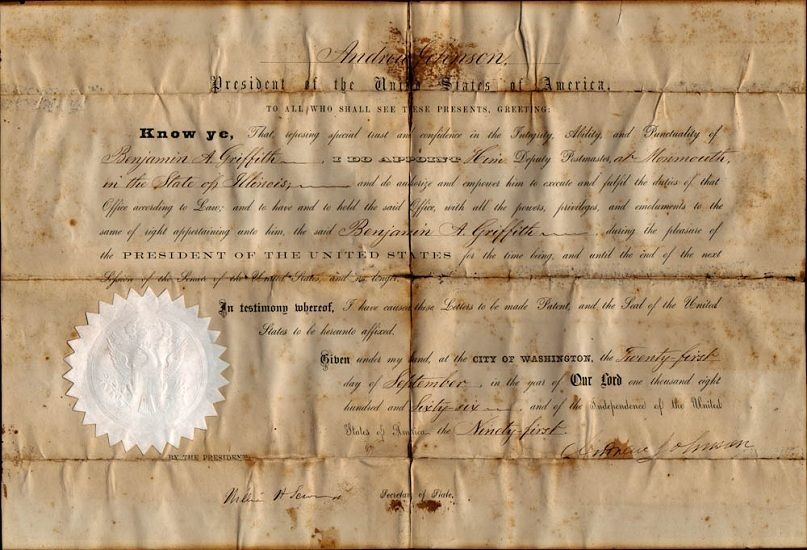 Andrew Johnson,
President of the United States of America.
TO ALL WHO SHALL SEE THESE PRESENTS, GREETING:
Know ye, That, reposing special trust and confidence in the Integrity, Ability, and Punctuality of
Benjamin A. Griffith, I DO APPOINT Him Deputy Postmaster, at Monmouth,
in the State of Illinois; and do authorize and empower him to execute and fulfil the duties of that
Office according to Law; and to have and to hold the said Office, with all the powers, privileges, and emoluments to the
same of right appertaining unto him, the said Benjamin A. Griffith, during the pleasure of
the PRESIDENT OF THE UNITED STATES for the time being, and until the end of the next
Session of the Senate of the United States, and no longer.
In testimony whereof, I have caused these Letters to be made Patent, and the Seal of the United
States to be hereunto affixed.
Given under my hand, at the CITY OF WASHINGTON, the Twenty-first
day of September in the year of Our Lord one thousand eight
hundred and Sixty-six and of the Independence of the United
States of America the Ninety-first.
Andrew Johnson
BY THE PRESIDENT
William H Seward Secretary of State.